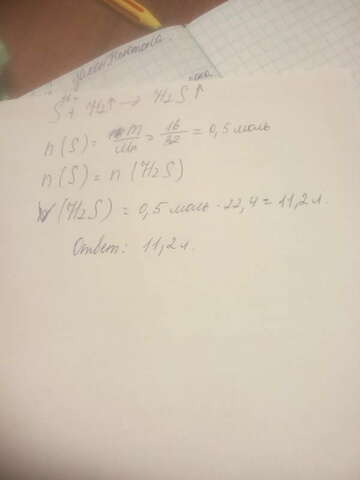 S + H₂↑ → H₂S↑
n(S) = m/M = 16/32 = 0,5 моль
n(S) = n(H₂S)
V(H₂S) = 0,5 моль · 22,4 = 11,2 л.
Ответ: 11,2 л.